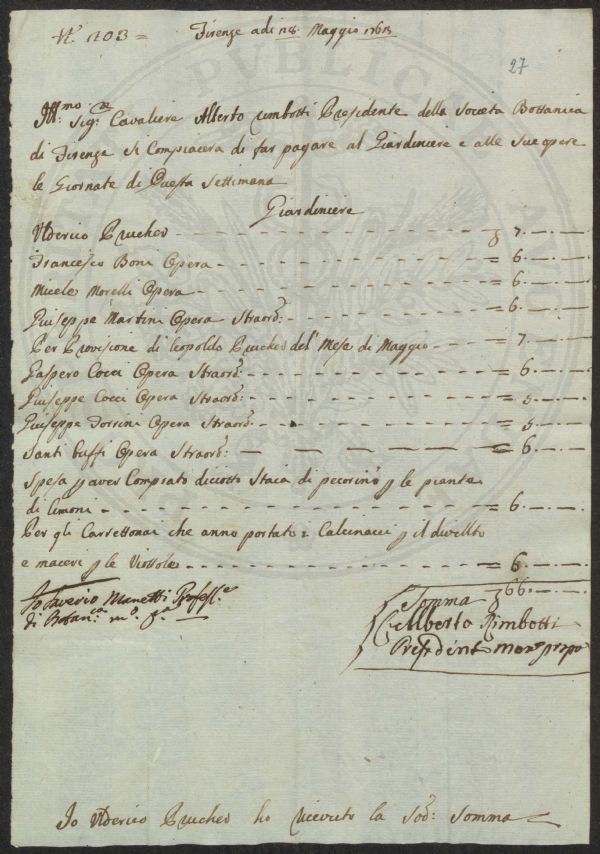 N.° 103 =
Firenze adi 28. Maggio 1763
27
Ill:mo Sig:re Cavaliere Alberto Rimbotti Presidente della Società Bottanica
di Firenze Si Compiacera di far pagare al Giardiniere e alle Sue opere
le Giornate di Questa Settimana
Giardiniere
Ulderico Prucher - - - - - 7. - . -
Francesco Boni Opera - - - - = 6. - . -
Micele Morelli Opera - - - - = 6. - . -
Giuseppe Martini Opera Straord: - - - - = 6. - . -
Per Provisione di Leopoldo Prucher del' Mese di Maggio - - - - = 7. - . -
Gaspero Cocci Opera Straord: - - - - = 6. - . -
Giuseppe Cocci Opera Straord: - - - - = 5. - . -
Giuseppe Torrini Opera Straord: - - - - = 5. - . -
Santi Buffi Opera Straord: - - - - = 6. - . -
Spesa p aver Comprato diciotto Staia di pecorino p le piante
di Limoni - - - - = 6. - . -
Per gli Carrettonai che anno portato 2 Calcinacci p il divelto
e maceri p le Viottole - - - - = 6. - . -
Somma 66. - . -
Io Saverio Manetti Profess:e
di Botan:ca m:o p:a
Alberto Rimbotti
President mano ppa
Io Ulderico Prucher ho ricevuto la Sod: Somma